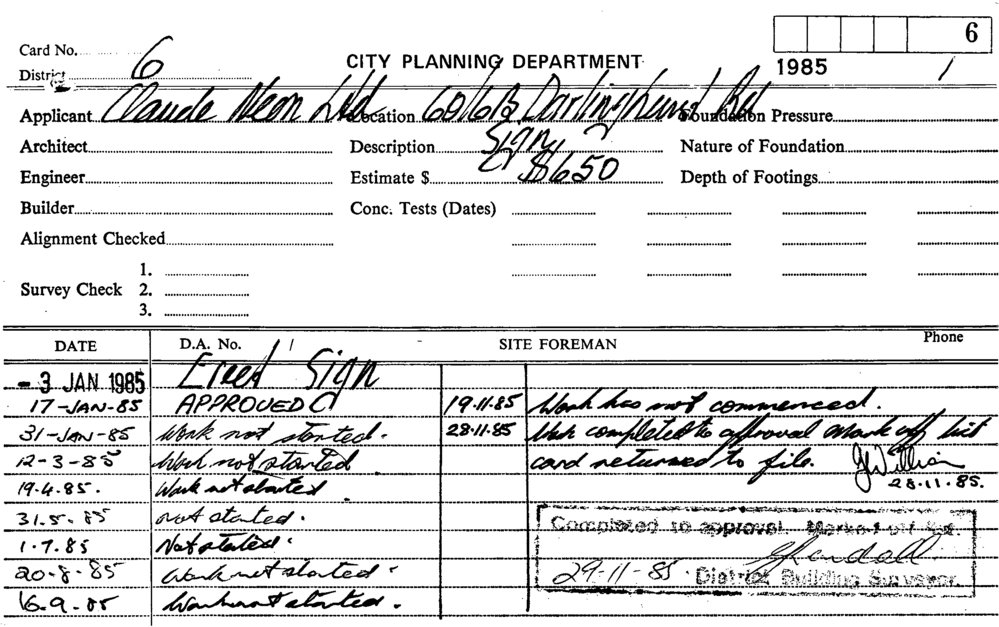 6
Card No. 6
CITY PLANNING DEPARTMENT
1985 /
District
Applicant Claude Neon Ltd Location 60/6B Darlinghurst Rd Foundation Pressure
Architect Description Sign Nature of Foundation
Engineer Estimate $ $650 Depth of Footings
Builder Conc. Tests (Dates)
Alignment Checked
1.
Survey Check 2.
3.
DATE D.A. No. / SITE FOREMAN Phone
- 3 JAN 1985 Erect Sign
17-JAN-85 APPROVED 19.11.85 Work has not commenced.
31-JAN-85 Work not started. 28.11.85 Work completed to approval mark off list
12-3-85 Work not started card returned to file.
19.4.85. Work not started 28.11.85.
31.5.85 not started.
1.7.85 Not started.
20.8.85 Work not started
16.9.85 Work not started.
Completed to approval. Marked off list.
29-11-85. District Building Surveyor